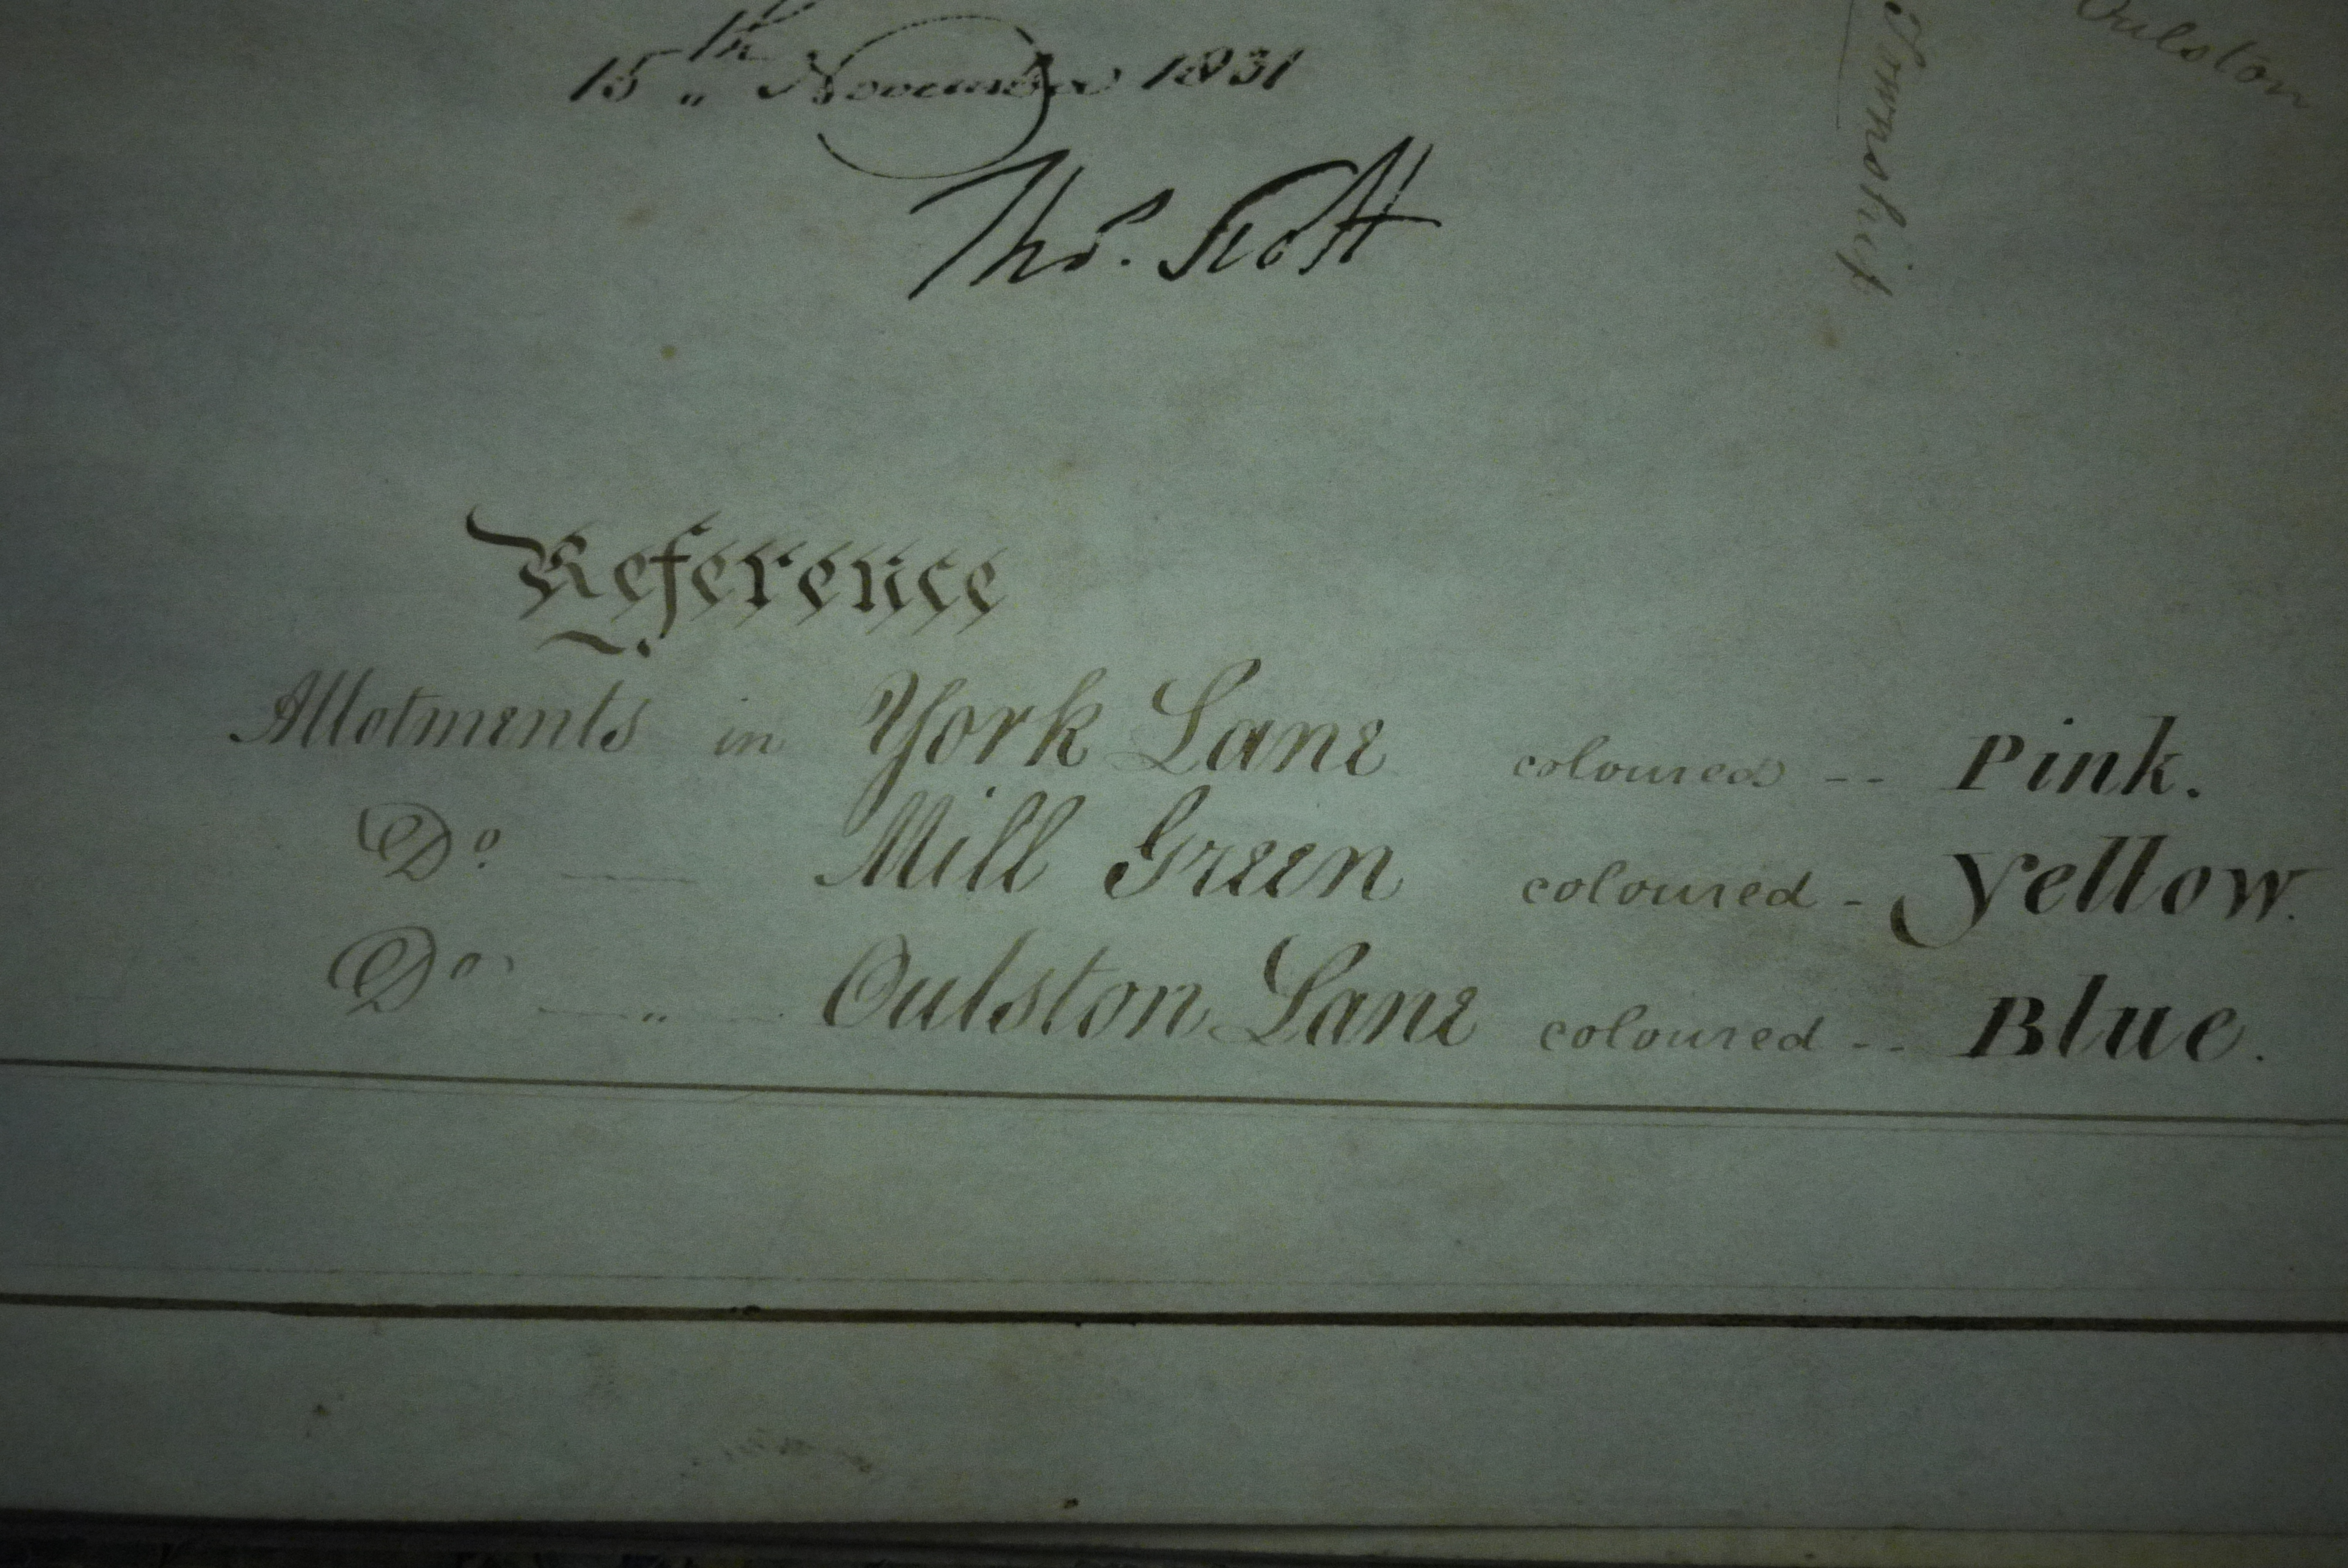 15th November 1831
Thos. Scott
Township
Oulston
Reference
Allotments in York Lane coloured -- Pink.
Do. — Mill Green coloured - Yellow.
Do. — „ — Oulston Lane coloured -- Blue.